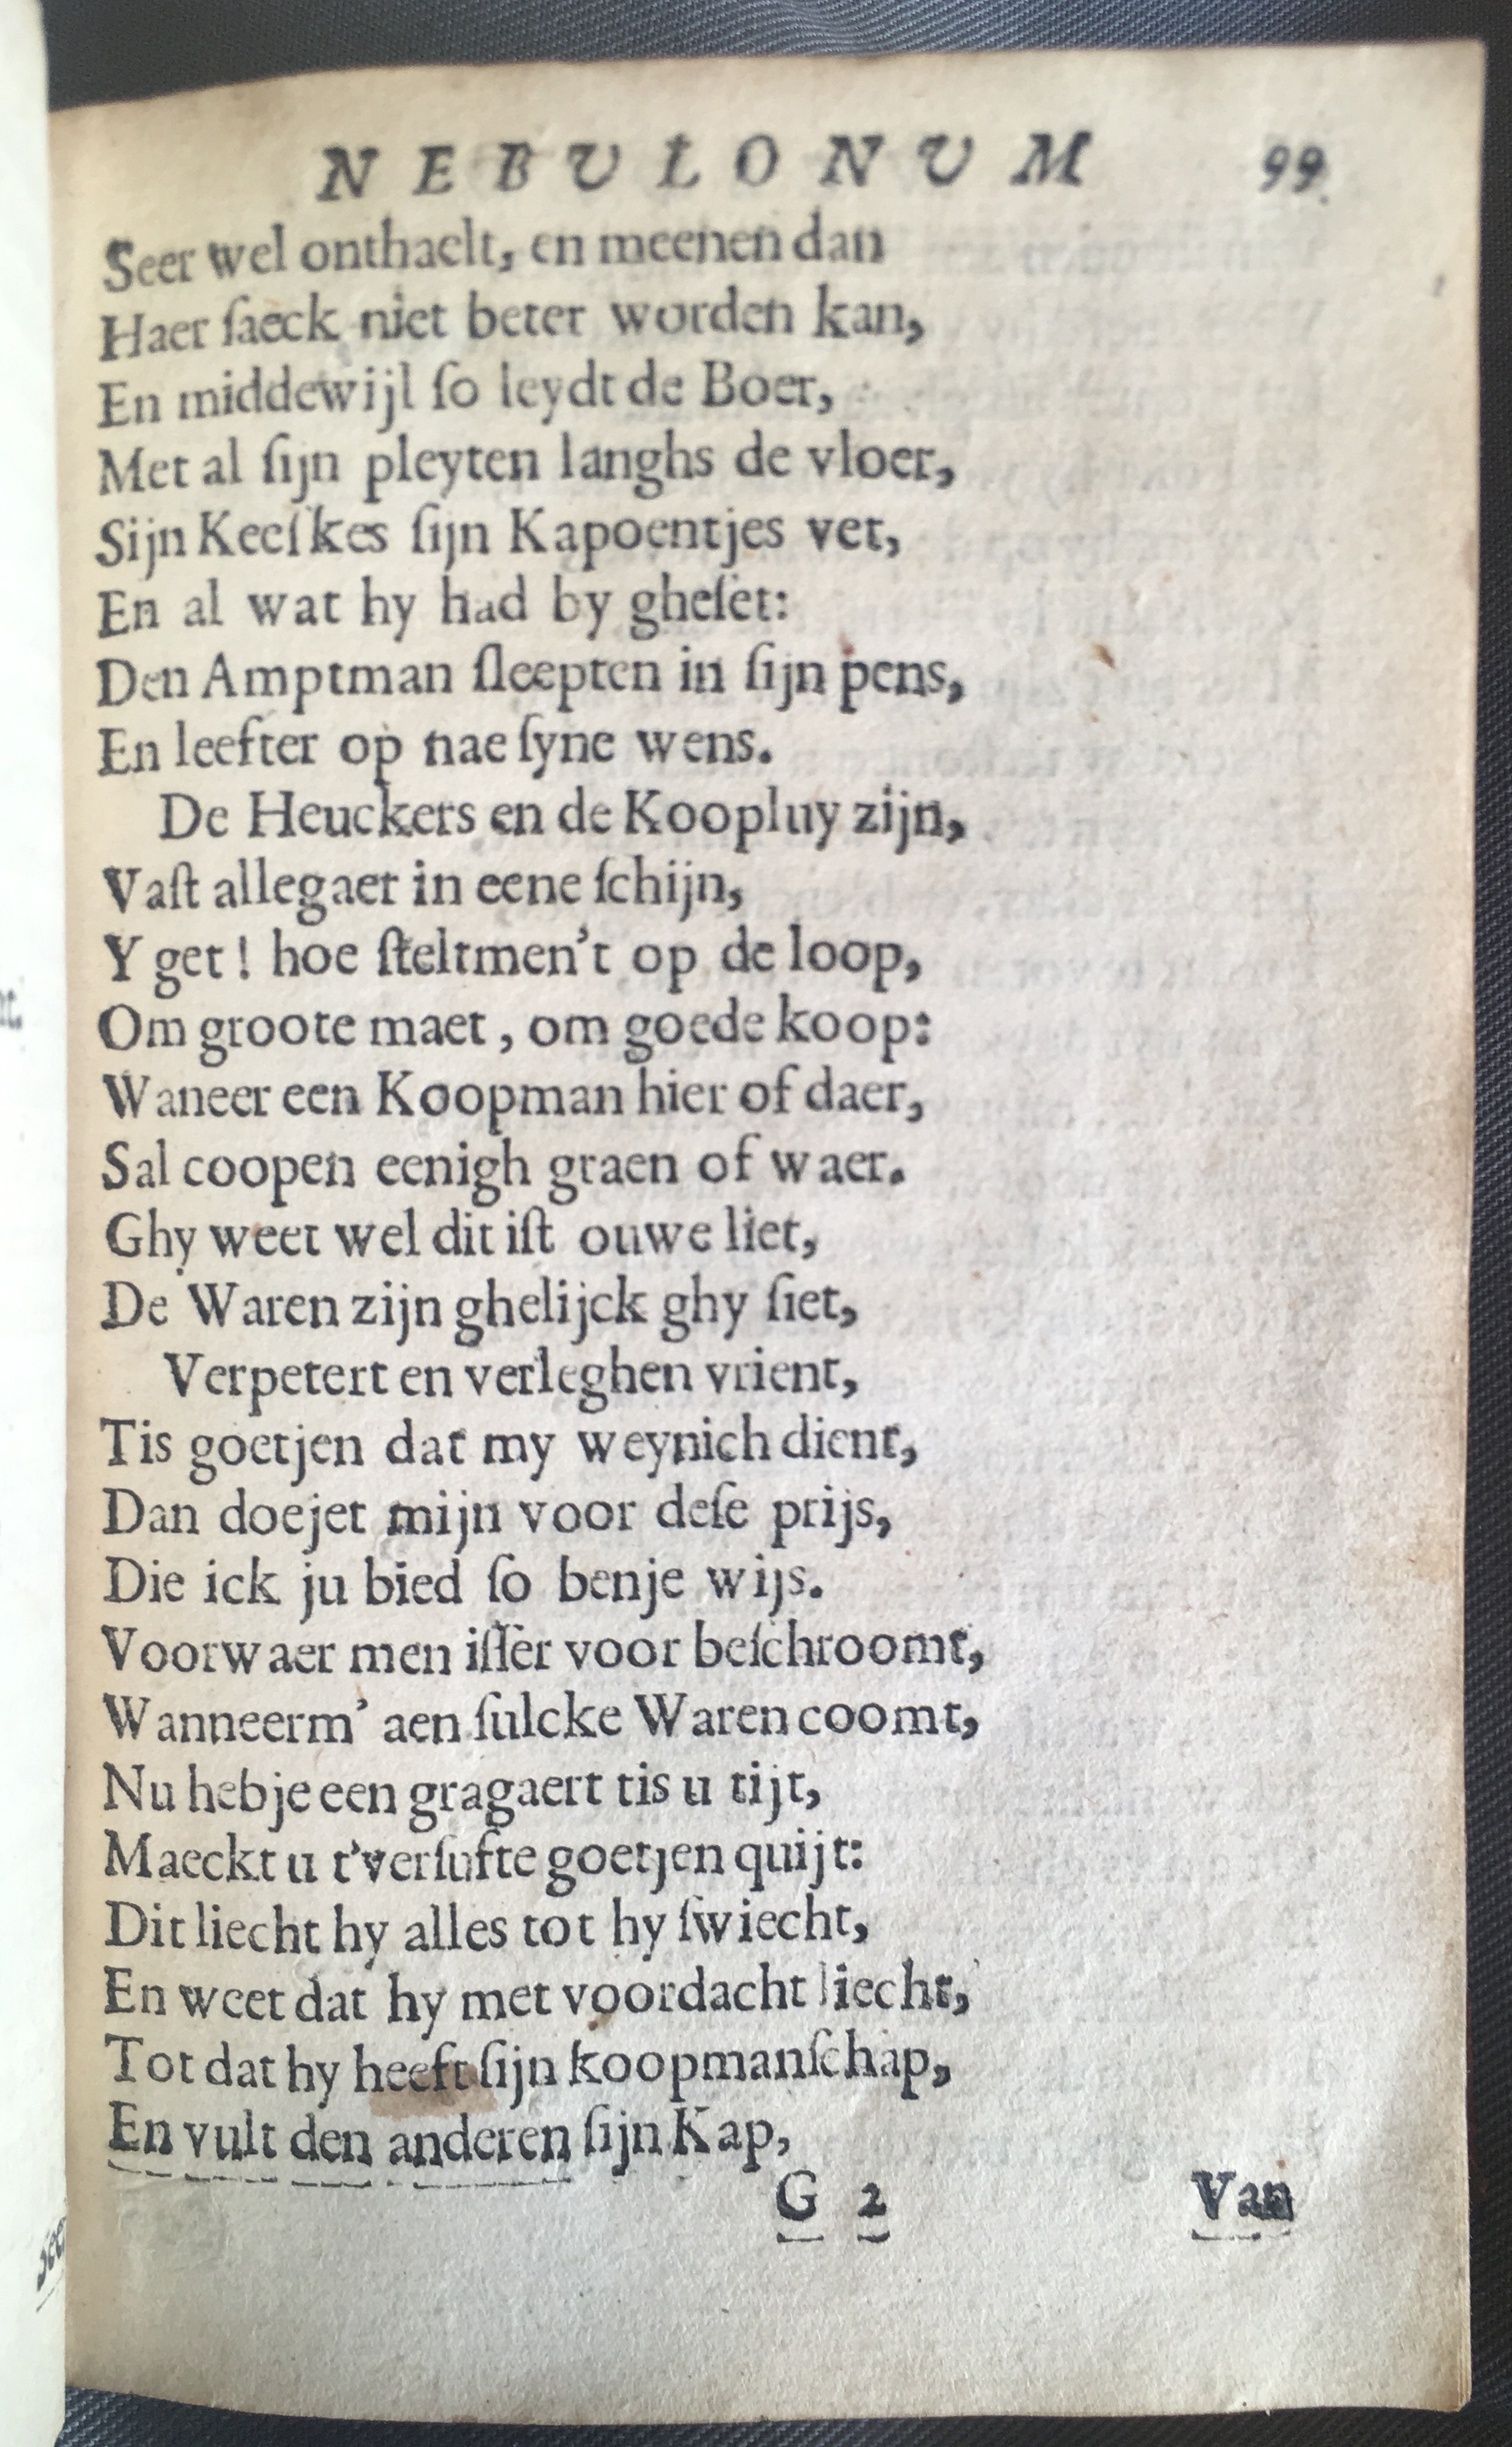 NEBULONUM 99.
Seer wel onthaelt, en meenen dan
Haer ſaeck niet beter worden kan,
En middewijl ſo leydt de Boer,
Met al ſijn pleyten langhs de vloer,
Sijn Keeſkes ſijn Kapoentjes vet,
En al wat hy had by gheſet:
Den Amptman ſleepten in ſijn pens,
En leefter op nae ſyne wens.
De Heuckers en de Koopluy zijn,
Vaſt allegaer in eene ſchijn,
Y get! hoe ſteltmen't op de loop,
Om groote maet, om goede koop:
Waneer een Koopman hier of daer,
Sal coopen eenigh graen of waer.
Ghy weet wel dit iſt ouwe liet,
De Waren zijn ghelijck ghy ſiet,
Verpetert en verleghen vrient,
Tis goetjen dat my weynich dient,
Dan doejet mijn voor deſe prijs,
Die ick ju bied ſo benje wijs.
Voorwaer men iſſer voor beſchroomt,
Wanneerm' aen ſulcke Waren coomt,
Nu hebje een gragaert tis u tijt,
Maeckt u t'verſufte goetjen quijt:
Dit liecht hy alles tot hy ſwiecht,
En weet dat hy met voordacht liecht,
Tot dat hy heeft ſijn koopmanſchap,
En vult den anderen ſijn Kap,
G 2 Van